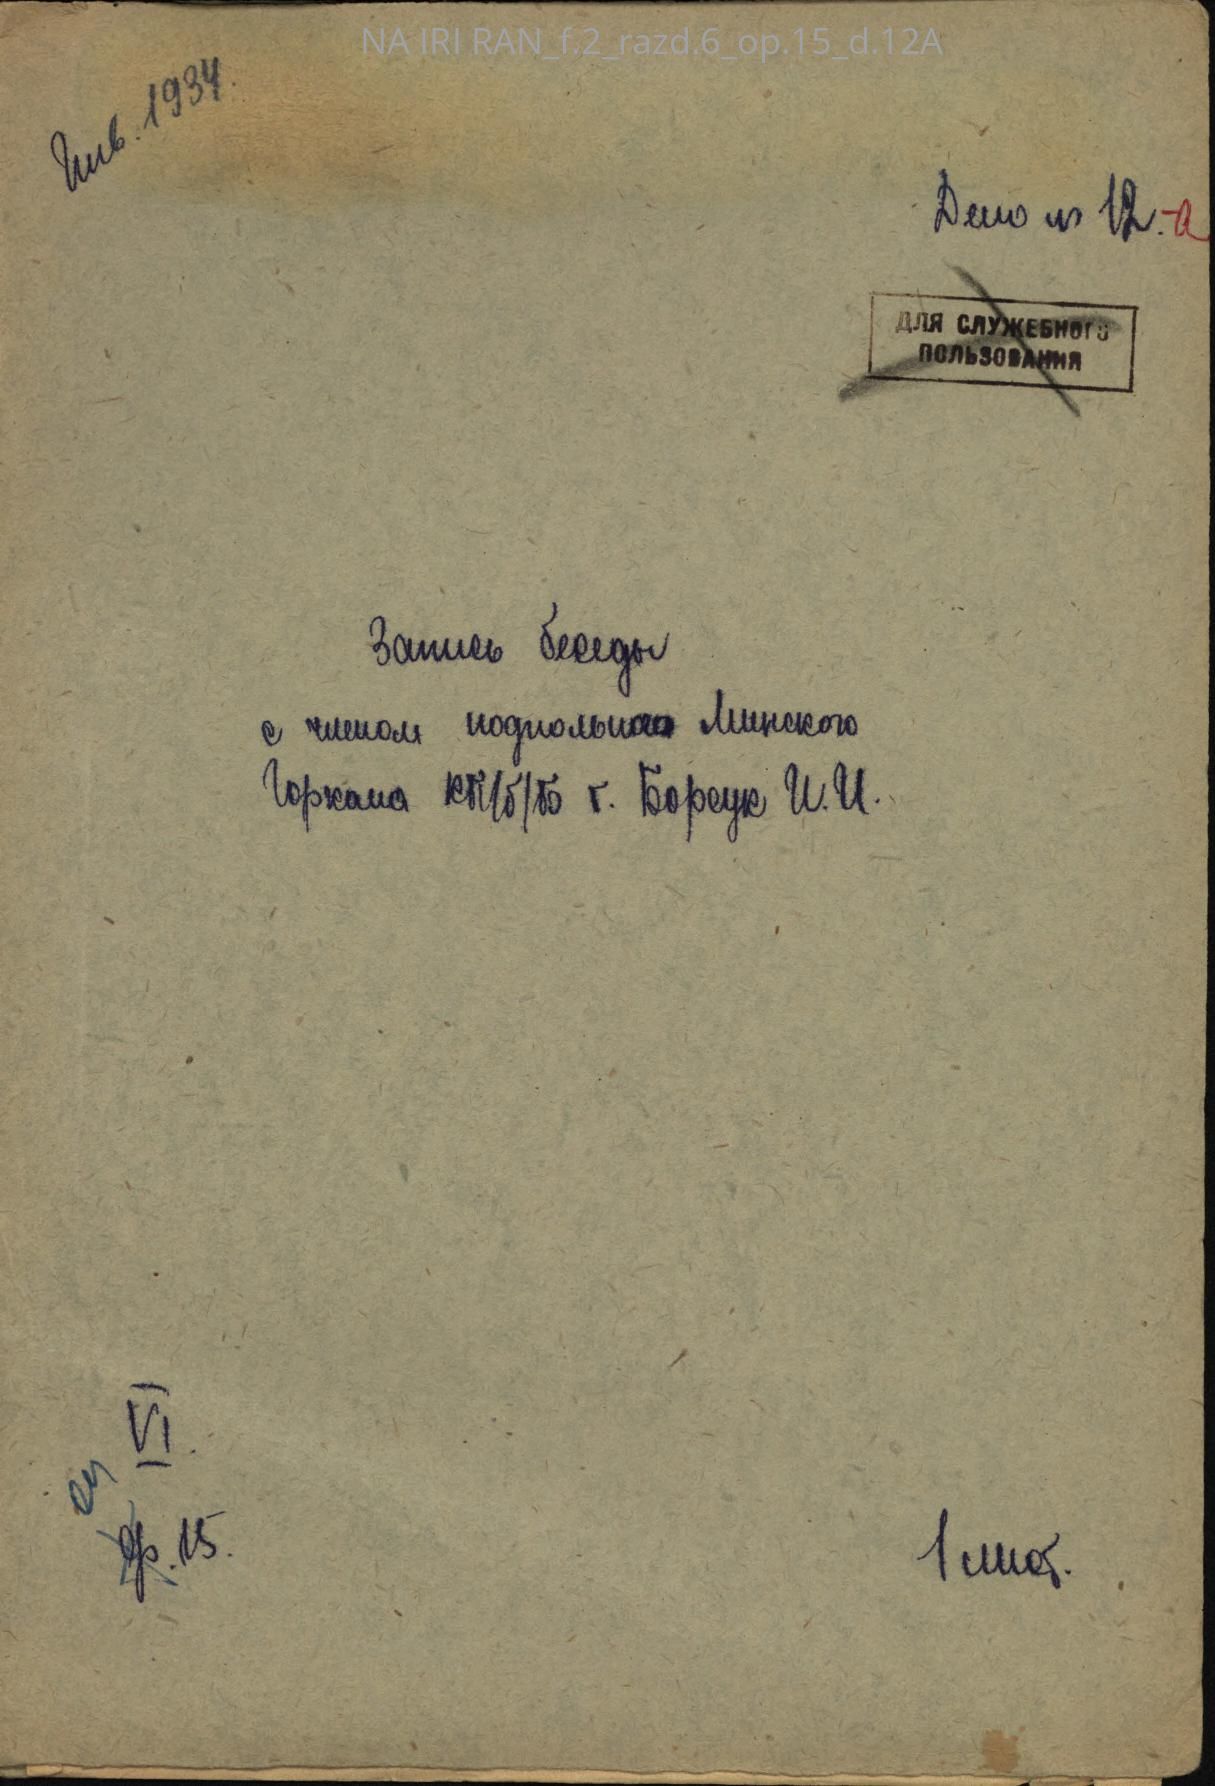 NA IRI RAN_f.2_razd.6_op.15_d.12A
Инв. 1934.
Дело № 12.-а
ДЛЯ СЛУЖЕБНОГО
ПОЛЬЗОВАНИЯ
Запись беседы
с членом подпольного Минского
Горкома КП/б/Б т. Борсук И.И.
VI.
оп
ф. 15.
1 лист.